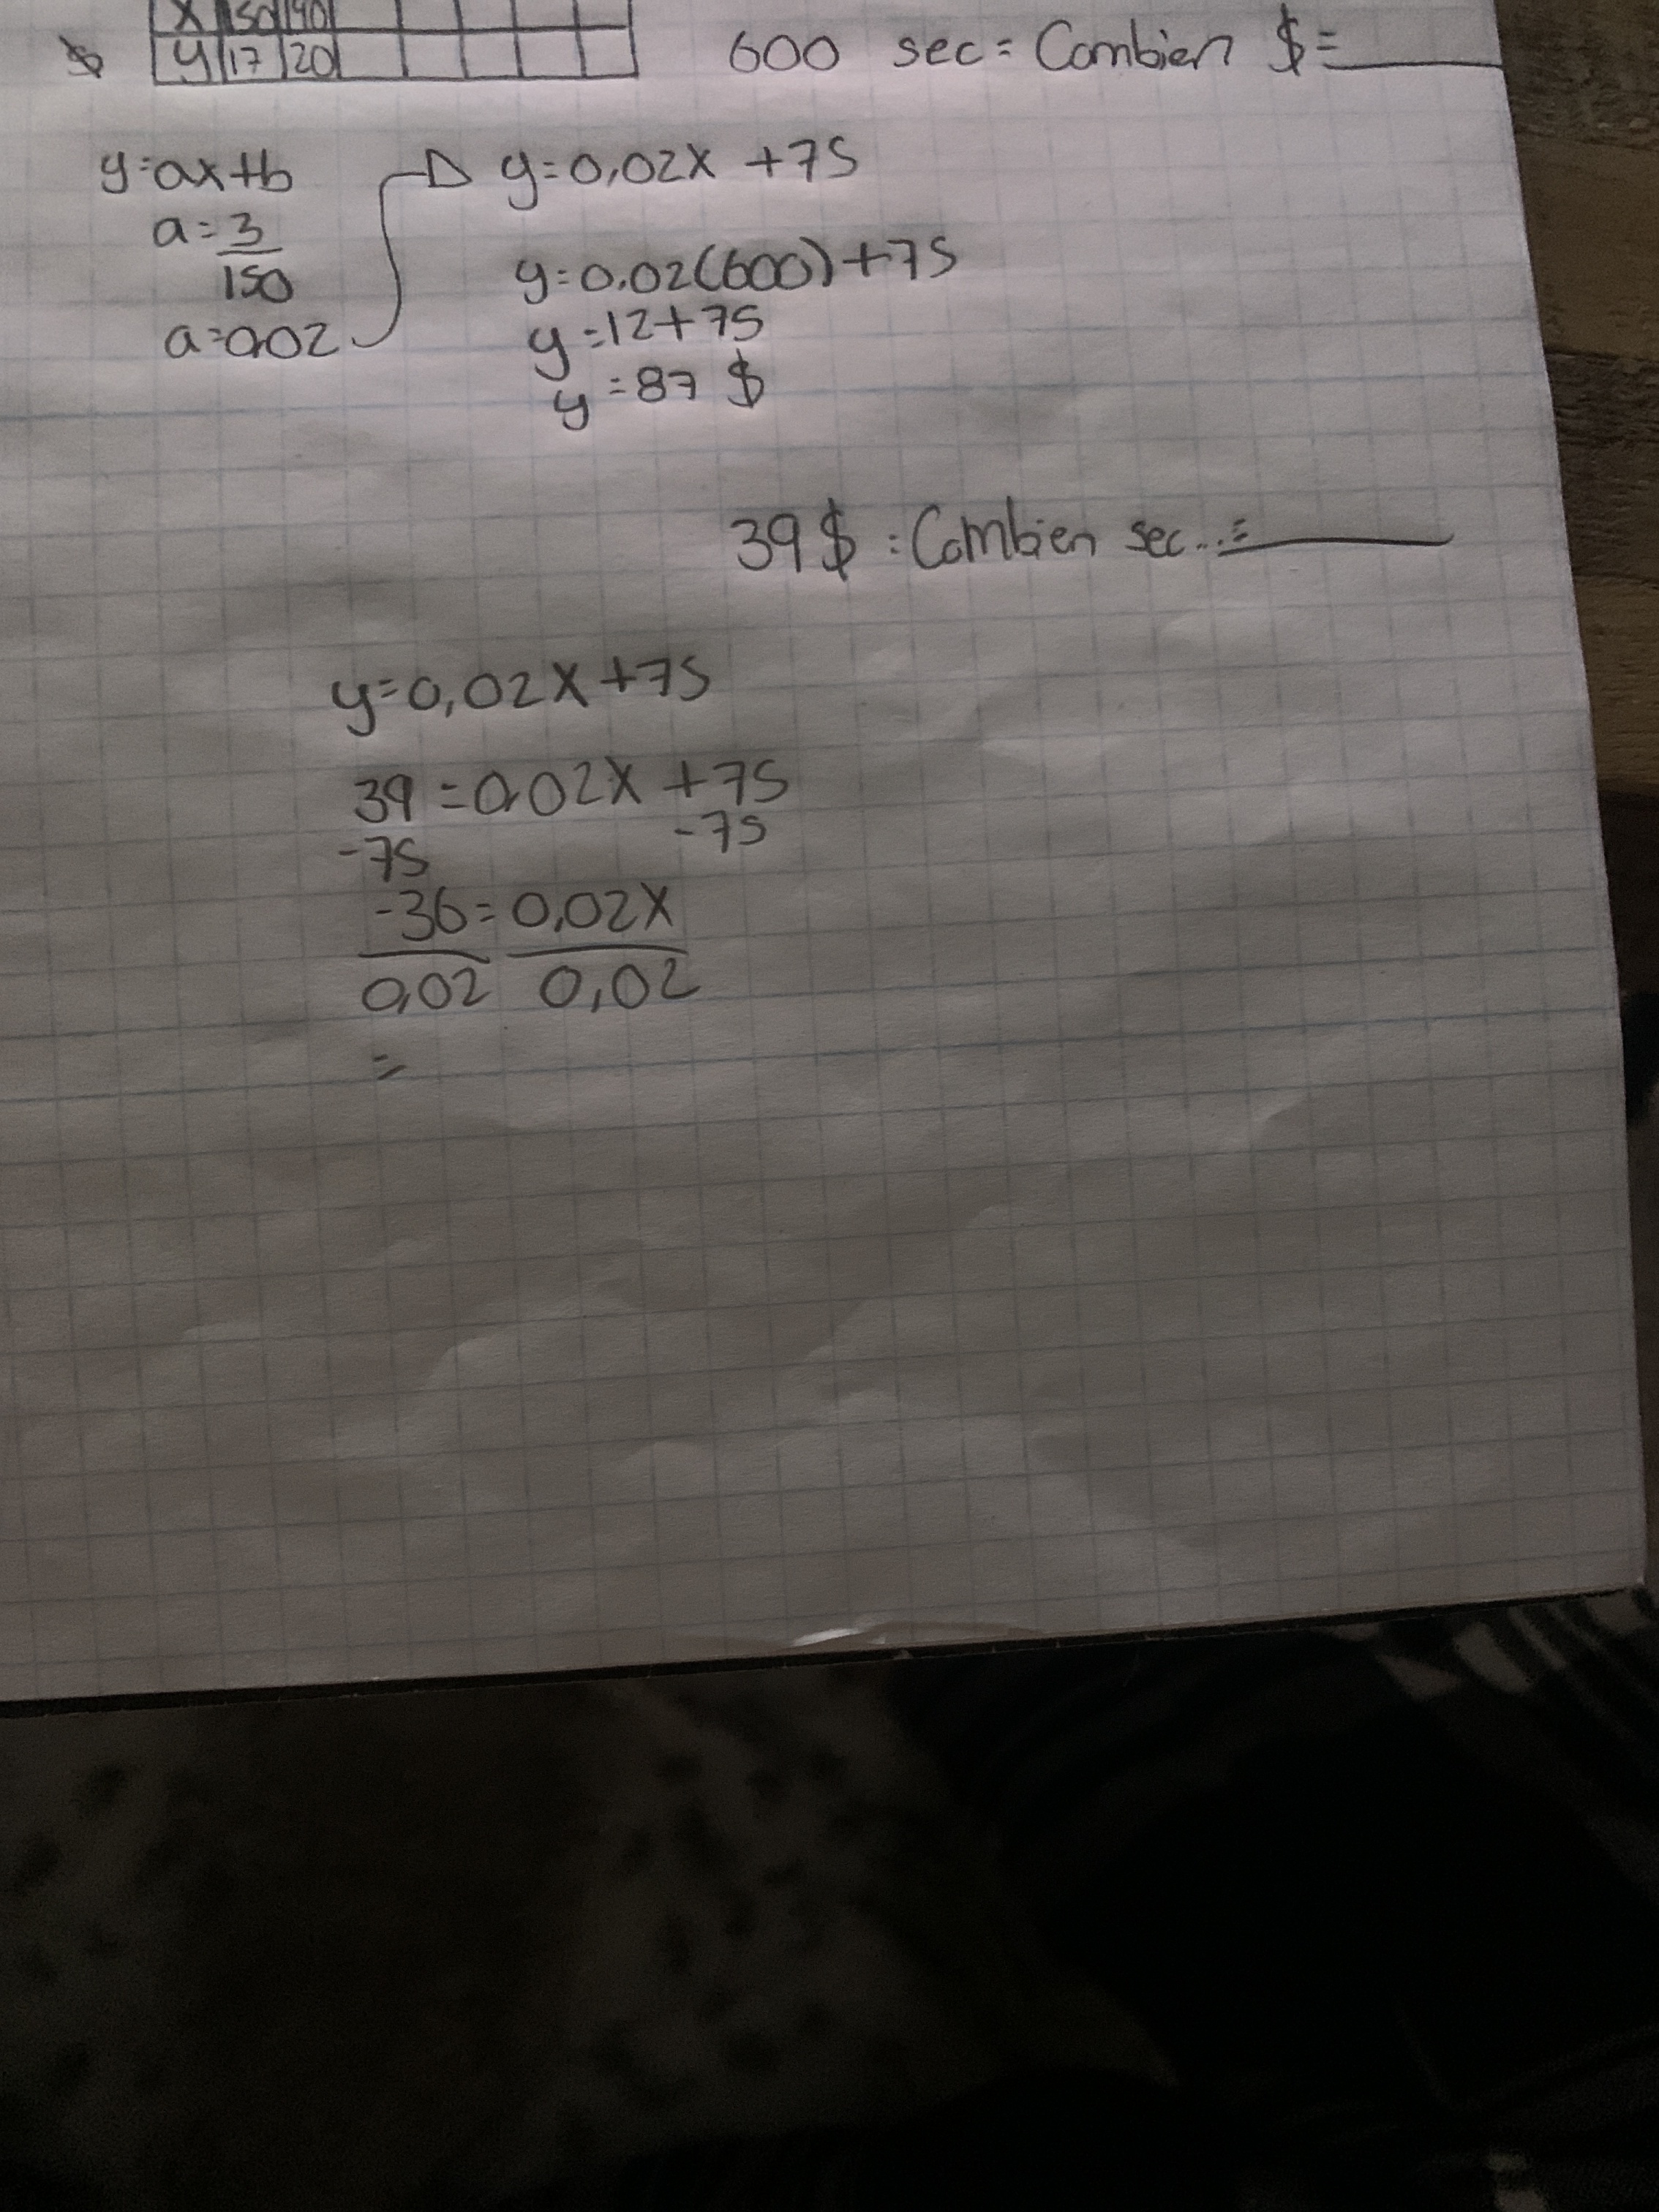 X
$ y 17 20
600 sec = Combien $ = ______
y=ax+b
a=3/150
a=0,02
y=0,02x +75
y=0.02(600)+75
y=12+75
y=87 $
39$ : Combien sec...= ______
y=0,02x+75
39=0,02x +75
-75 -75
-36=0,02x
0,02 0,02
=